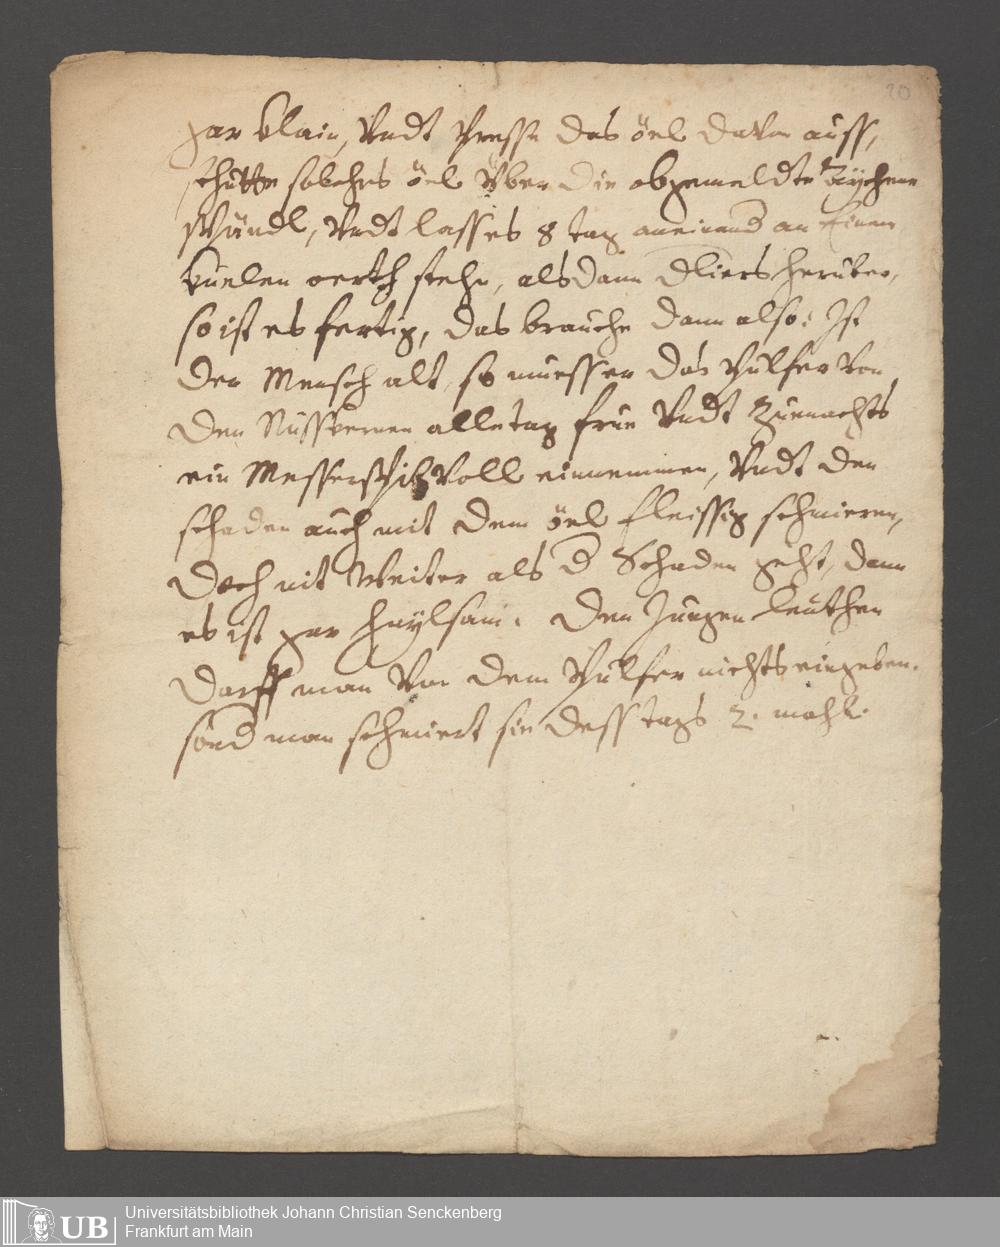 20
gar klain, Vndt Presse das öel dauon auss,
schutte solches öel Vber die obgemeldte
Pündl, Vndt lass es 8 tag aneinand an Einem
kuelen oerth stehn, alsdann herüber,
so ist es fertig, das brauche dann also: Ist
der Mensch alt, so muess er das Pulfer von
den Nusskernen alle tag frue Vndt Zuenachts
ein Messerspiz Voll einnemmen, Vndt den
schaden auch mit dem öel fleissig schmieren,
doch nit Weiter als d Schaden geht, dann
es ist gar haylsam. Den Jungen Leuthen
darff man Von dem Pulfer nichts eingeben.
sond man schmiert sie dess tags 2. mahl.
UB
Universitätsbibliothek Johann Christian Senckenberg
Frankfurt am Main